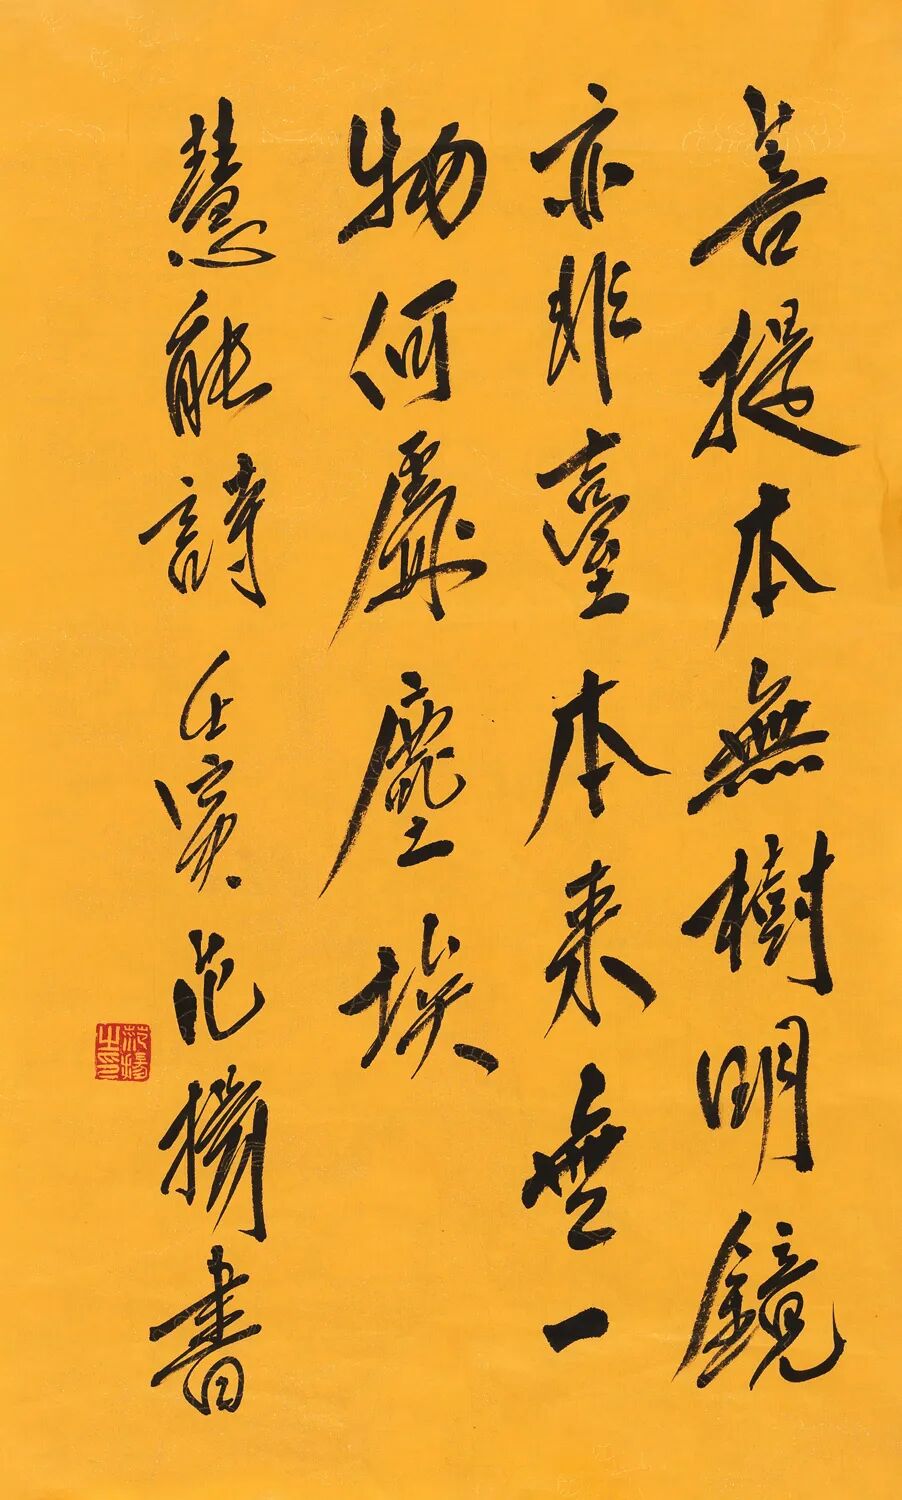 菩提本無樹明鏡
亦非臺本来無一
物何處塵埃
慧能詩壬寅范書
之印